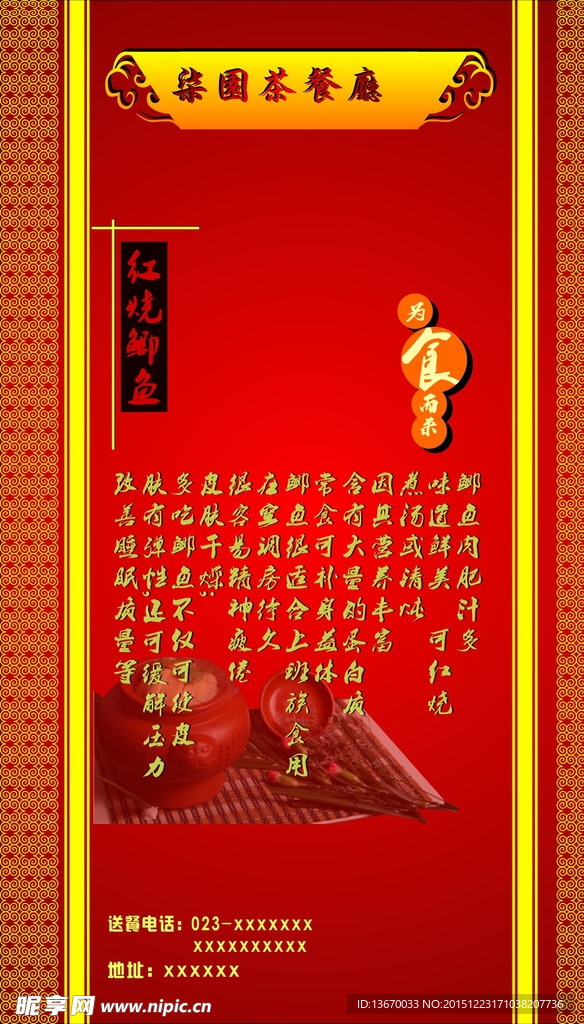 柒園茶餐廳
红烧鲫鱼
为
食
而来
鲫鱼肉肥汁多
味道鲜美 可红烧
煮汤或清炖
因其营养丰富
含有大量的蛋白质
常食可补身益体
鲫鱼很适合上班族食用
在空调房待久
很容易精神疲倦
皮肤干燥;
多吃鲫鱼不仅可使皮
肤有弹性;还可缓解压力
改善睡眠质量等
送餐电话: 023-xxxxxxx
xxxxxxxxxx
地址: xxxxxx
昵享网 www.nipic.cn
ID:13670033 NO:20151223171038207736